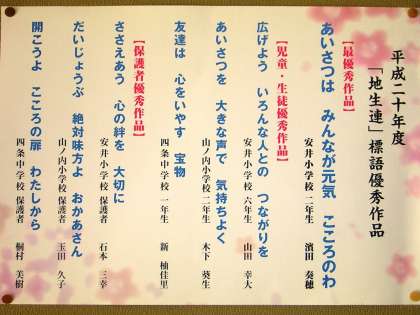 平成二十年度
「地生連」標語優秀作品
【最優秀作品】
あいさつは　みんなが元気　こころのわ
安井小学校 二年生　濱田 奏穂
【児童・生徒優秀作品】
広げよう　いろんな人との　つながりを
安井小学校 六年生　山田 幸大
あいさつを　大きな声で　気持ちよく
山ノ内小学校 二年生　木下 葵生
友達は　心をいやす　宝物
四条中学校 一年生　新 柚佳里
【保護者優秀作品】
ささえあう　心の絆を　大切に
安井小学校 保護者　石本 三幸
だいじょうぶ　絶対味方よ　おかあさん
山ノ内小学校 保護者　玉田 久子
開こうよ　こころの扉　わたしから
四条中学校 保護者　桐村 美樹